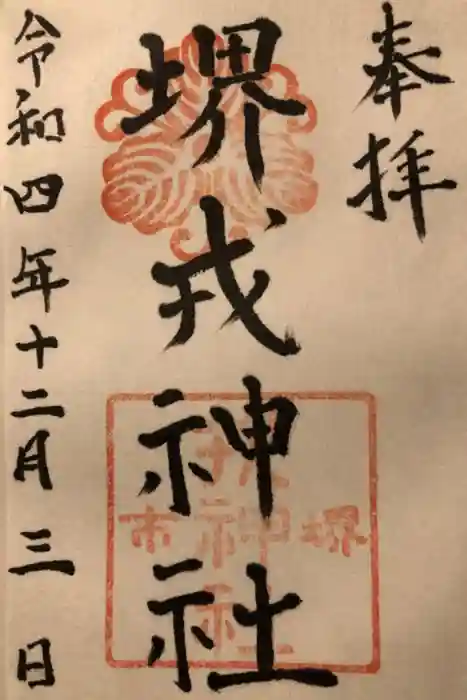 奉拝
堺戎神社
令和四年十二月三日
堺
戎神社
市